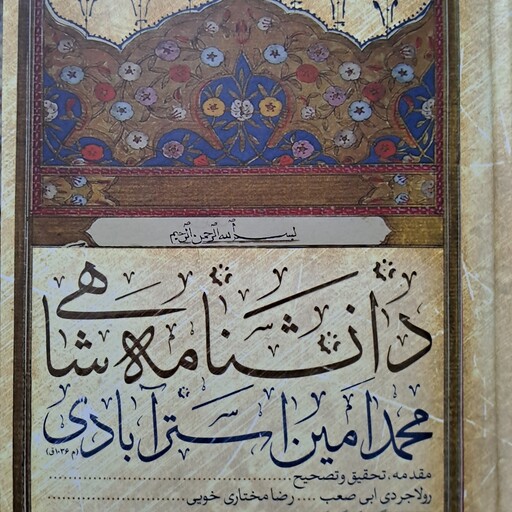 بسم الله الرحمن الرحیم
دانشنامه شاهی
محمد امین استرآبادی (م ۱۰۳۶ق)
مقدمه، تحقیق و تصحیح
رولا جردی ابی صعب .... رضا مختاری خویی